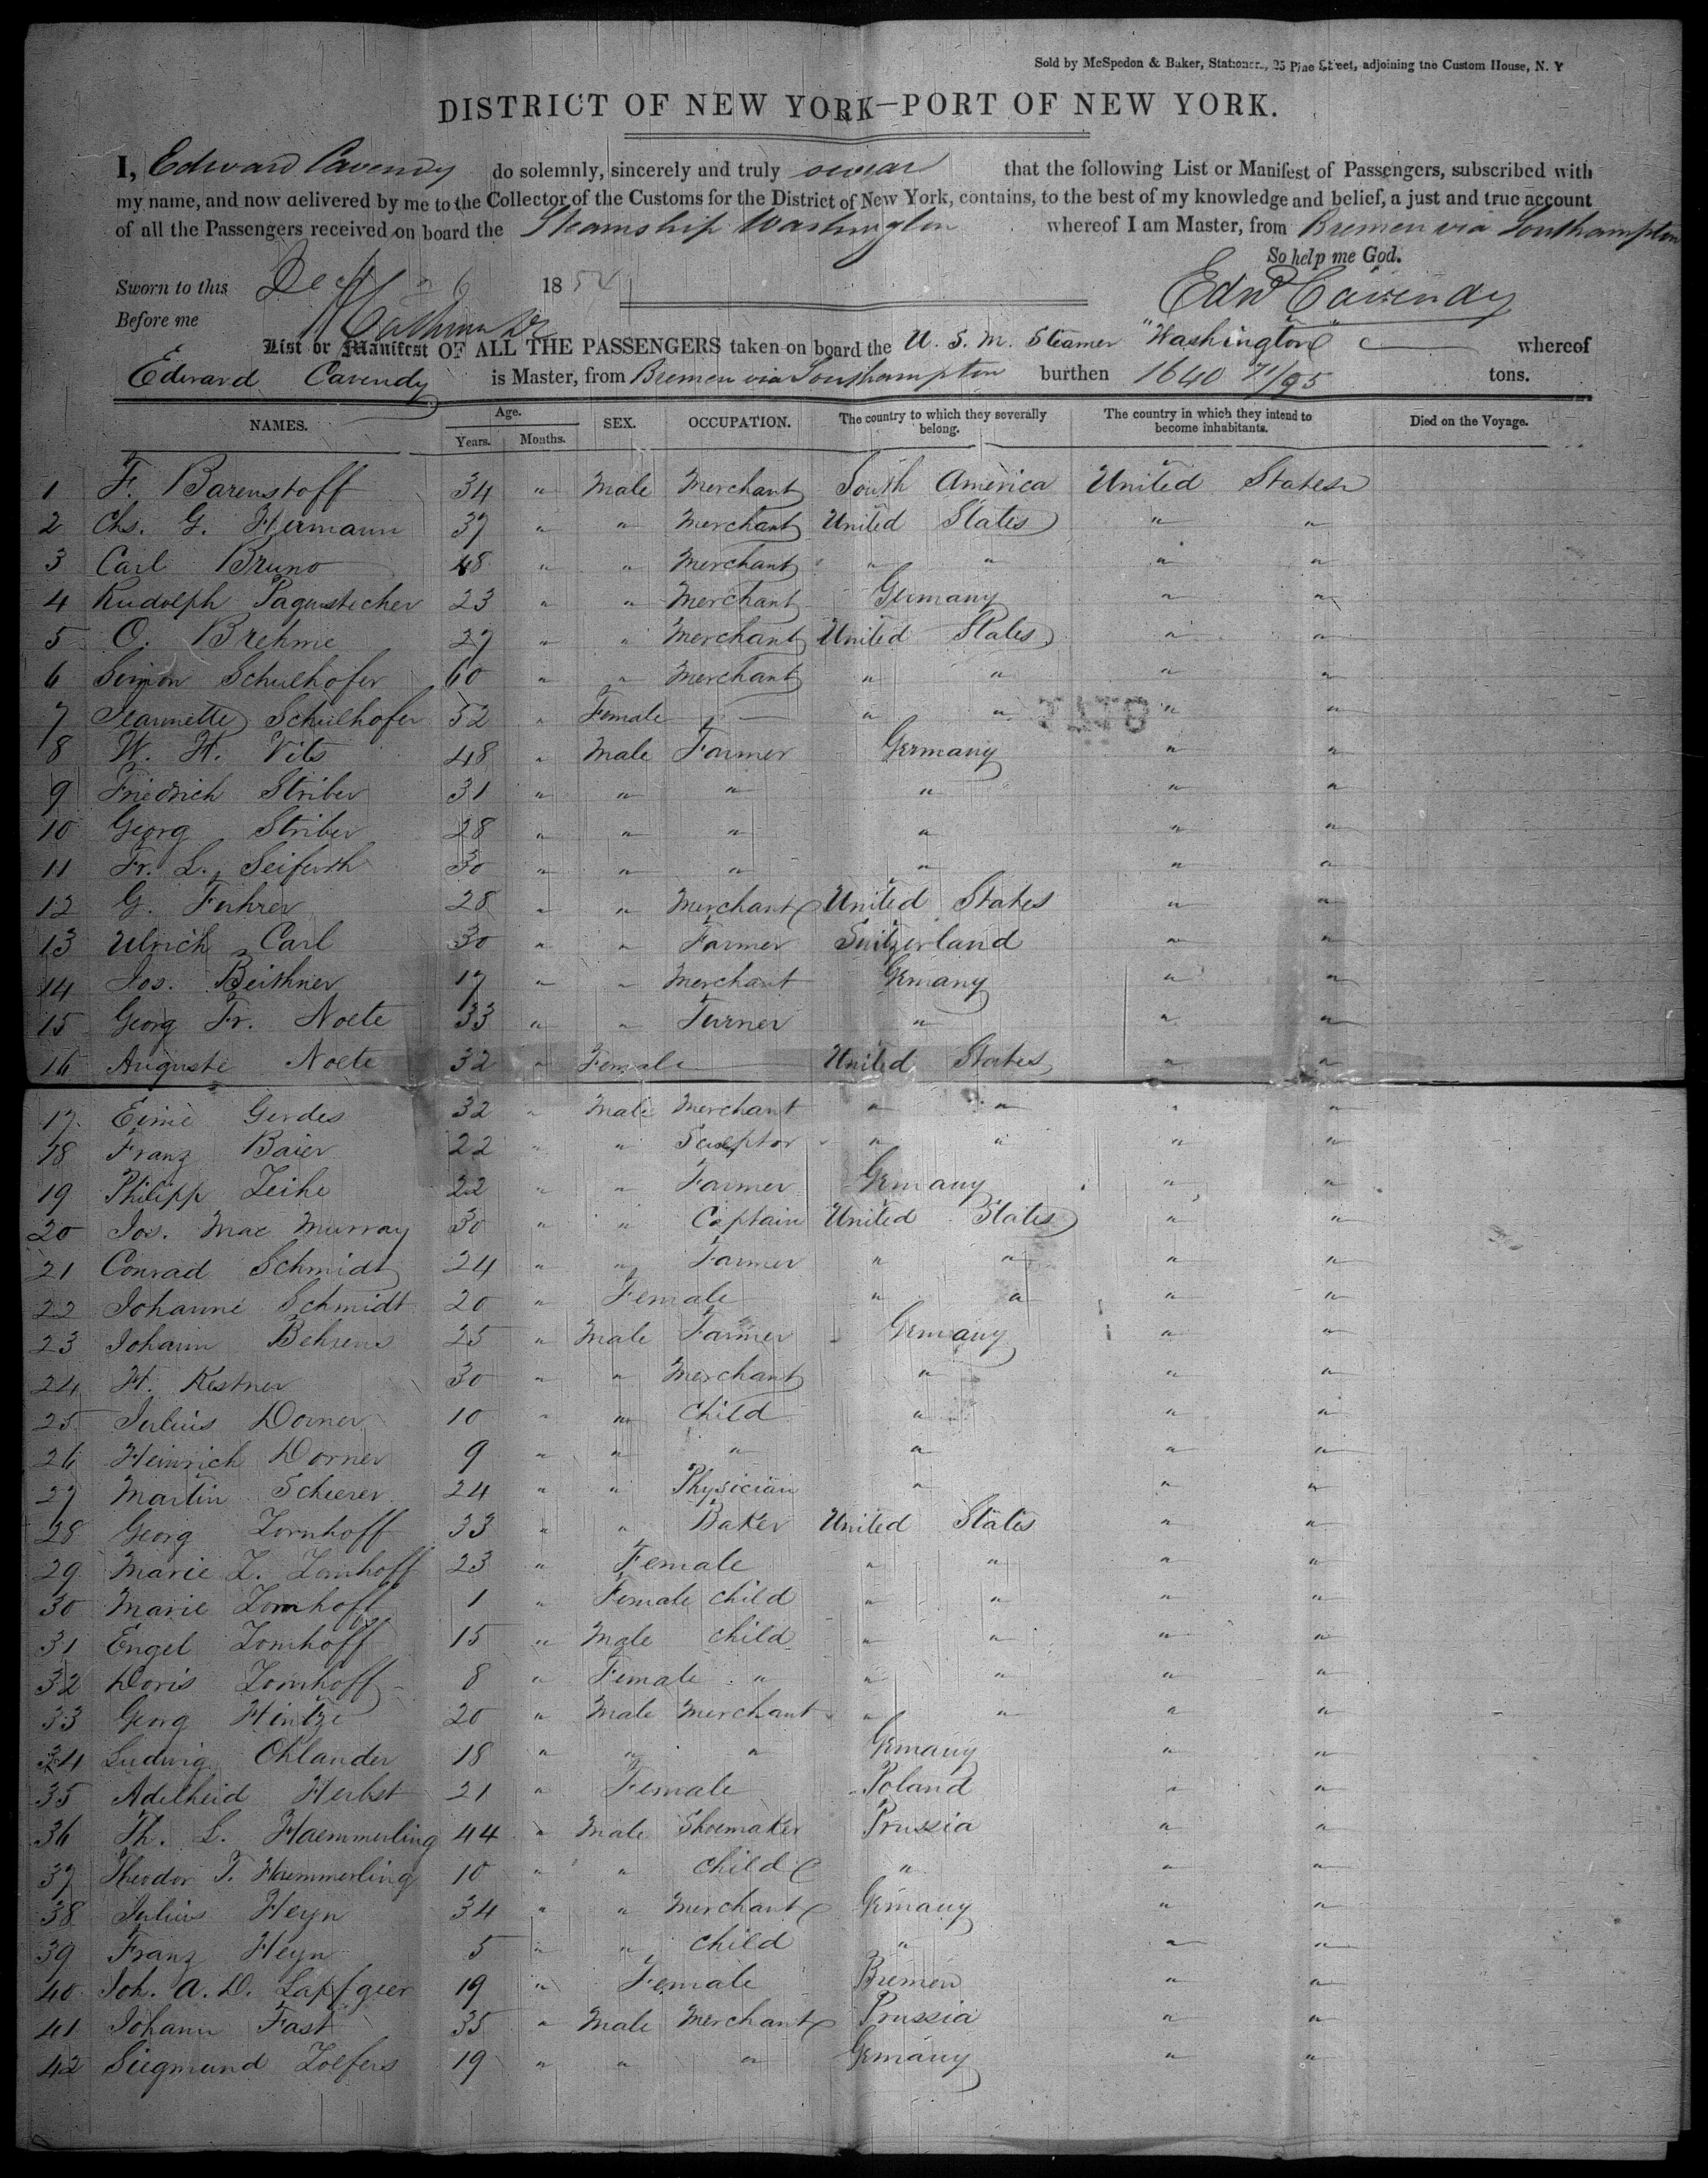 Sold by McSpedon & Baker, Stationers, 25 Pine Street, adjoining the Custom House, N. Y
DISTRICT OF NEW YORK—PORT OF NEW YORK.
I, Edward Cavendy do solemnly, sincerely and truly swear that the following List or Manifest of Passengers, subscribed with
my name, and now delivered by me to the Collector of the Customs for the District of New York, contains, to the best of my knowledge and belief, a just and true account
of all the Passengers received on board the Steamship Washington whereof I am Master, from Bremen via Southampton
So help me God.
Sworn to this Dec 26 1854 Edwd Cavendy
Before me
List or Manifest OF ALL THE PASSENGERS taken on board the U. S. M. Steamer "Washington" whereof
Edward Cavendy is Master, from Bremen via Southampton burthen 1640 71/95 tons.
NAMES. Age. Years. Months. SEX. OCCUPATION. The country to which they severally belong. The country in which they intend to become inhabitants. Died on the Voyage.
1 F. Barenstoff 34 " Male Merchant South America United States
2 Chs. G. Hermann 37 " " Merchant United States " "
3 Carl Bruno 48 " " Merchant " " " "
4 Rudolph Pagenstecher 23 " " Merchant Germany " "
5 O. Brehme 27 " " Merchant United States " "
6 Simon Schulhofer 60 " " Merchant " " " "
7 Jeannette Schulhofer 52 " Female — " " " "
8 W. H. Vits 48 " Male Farmer Germany " "
9 Friedrich Striber 31 " " " " " "
10 Georg Striber 28 " " " " " "
11 Fr. L. Seiferth 30 " " " " " "
12 G. Fuhrer 28 " " Merchant United States " "
13 Ulrich Carl 30 " " Farmer Switzerland " "
14 Jos. Beithner 17 " " Merchant Germany " "
15 Georg Fr. Noete 33 " " Turner " " "
16 Auguste Noete 32 " Female United States " "
17 Gerdes 32 " Male Merchant " " " "
18 Franz Baier 22 " " Sculptor " " " "
19 Philipp Zeihe 22 " " Farmer Germany " "
20 Jos. Mac Murray 30 " " Captain United States " "
21 Conrad Schmidt 24 " " Farmer " " " "
22 Johanne Schmidt 20 " Female " " " "
23 Johann Behrens 25 " Male Farmer Germany " "
24 H. Kestner 30 " " Merchant " " "
25 Julius Dorner 10 " " Child " " "
26 Heinrich Dorner 9 " " " " " "
27 Martin Scheerer 24 " " Physician " " "
28 Georg Zornhoff 33 " " Baker United States " "
29 Marie L. Zornhoff 23 " Female " " " "
30 Marie Zornhoff 1 " Female Child " " " "
31 Engel Zornhoff 15 " Male Child " " " "
32 Doris Zornhoff 8 " Female " " " " "
33 Georg Hintze 20 " Male Merchant " " " "
34 Ludwig Ohlander 18 " " " Germany " "
35 Adelheid Herbst 21 " Female Poland " "
36 Th. L. Haemmerling 44 " Male Shoemaker Prussia " "
37 Theodor T. Haemmerling 10 " " Child " " "
38 Julius Heyn 34 " " Merchant Germany " "
39 Franz Heyn 5 " " Child " " "
40 Joh. A. D. Lapfgeer 19 " Female Bremen " "
41 Johann Fast 35 " Male Merchant Prussia " "
42 Siegmund Zoefers 19 " " " Germany " "